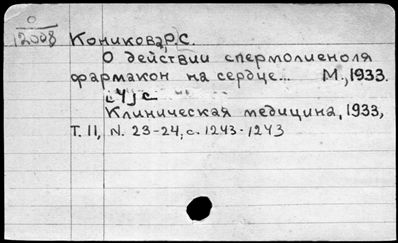 О
12008
Коникова, Р.С.
О действии спермолиеноля
фармакон на сердце... М., 1933.
Клиническая медицина, 1933,
Т. 11, N. 23-24, с. 1243-1243